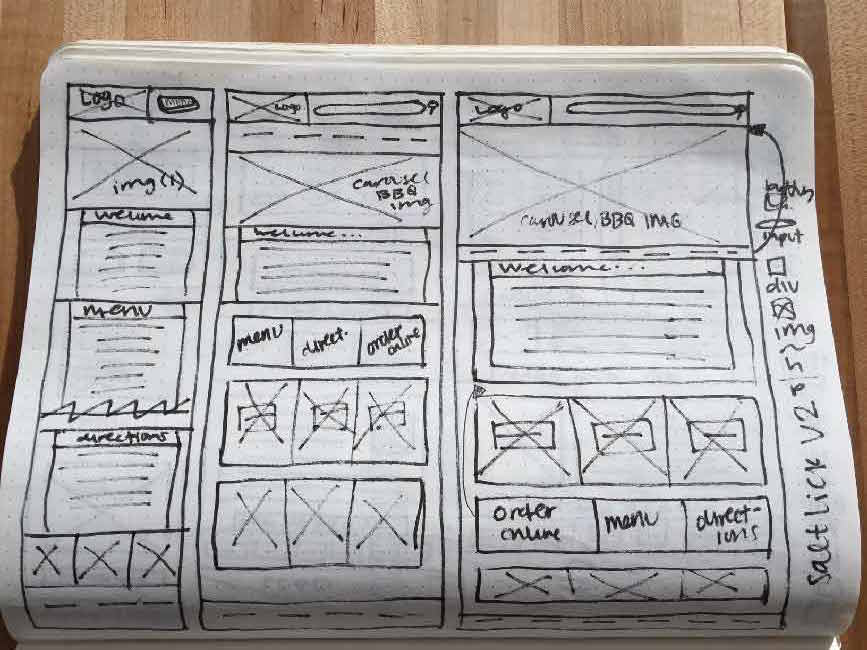 Logo
img (1)
welcome
menu
directions
Logo
carousel
BBQ
img
welcome...
menu
direct.
order
online
Logo
carousel, BBQ IMG
welcome...
order
online
menu
direct-
ions
input
div
img
Saltlick V2